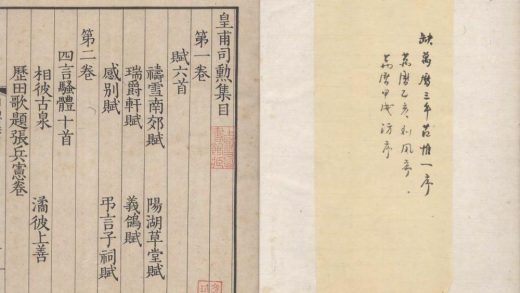 缺萬曆三年范惟一序
萬曆乙亥刘凤序、
萬曆甲戌汸序
皇甫司勳集目
第一卷
賦六首
禱雪南郊賦 陽湖草堂賦
瑞爵軒賦 義鴿賦
感別賦 弔言子祠賦
第二卷
四言騷體十首
相彼古泉 潏彼上善
歷田歌題張兵憲卷